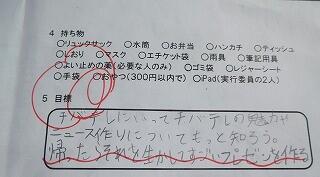 4 持ち物
○リュックサック ○水筒 ○お弁当 ○ハンカチ ○ティッシュ
○しおり ○マスク ○エチケット袋 ○雨具 ○筆記用具
○よい止めの薬(必要な人のみ) ○ゴミ袋 ○レジャーシート
○手袋 ○おやつ(300円以内で) ○iPad(実行委員の2人)
5 目標
チバテレにいってチバテレの魅力や
ニュース作りについてもっと知ろう。
帰ったらそれを生かしてすごいプレゼンを作る